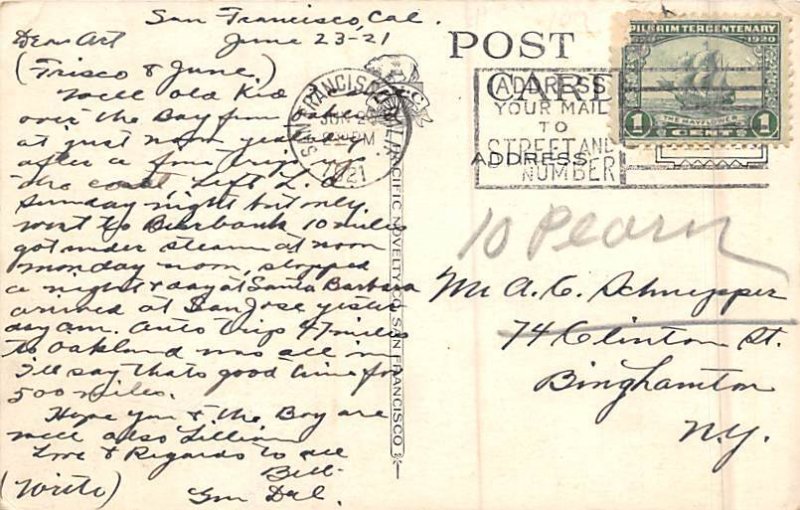 San Francisco, Cal.
June 23-21
Dear Art
(Frisco & June.)
Well old Kid
over the Bay from
at just noon
after a fine trip up
the coast, left L. A
Sunday night but only
went to Burbank 10 miles
got under steam at noon
monday noon, stopped
a night & day at Santa Barbara
arrived at San Jose yester
day am. auto trip 47 miles
to Oakland was all in
I'll say thats good time for
500 miles.
Hope you & the Boy are
well also Lillian
Love & Regards to all
Bill
(Write)
Gen Del.
POST CARD
ADDRESS
SAN FRANCISCO, CALIF.
1921
ADDRESS
YOUR MAIL
TO
STREET AND
NUMBER
PILGRIM TERCENTENARY
1920
THE MAYFLOWER
1 CENTS 1
PACIFIC NOVELTY CO. SAN FRANCISCO
10 Pearn
Mr A. C. Schnepper
74 Clinton St.
Binghamton
N.Y.